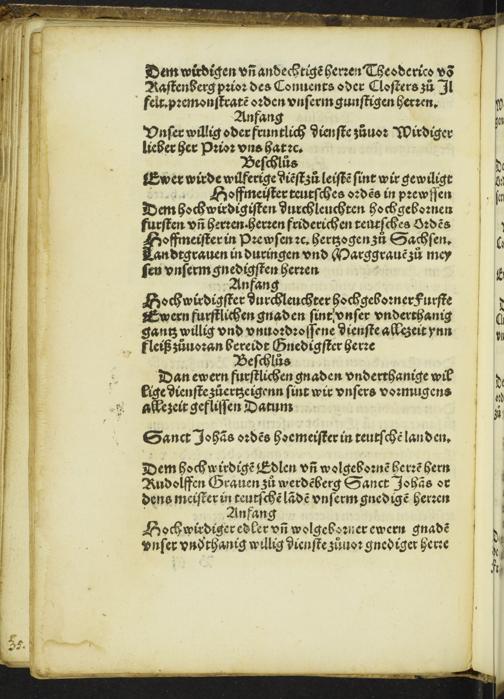 Dem wirdigen vñ andechtigē herren Theoderico vō
Rastenberg prior des Conuents oder Closters zů Il
felt. premonstratē orden vnserm gunstigen herren.
Anfang
Vnser willig oder fruntlich dienste zůuor Wirdiger
lieber her Prior vns hat ꝛc.
Beschlůs
Ewer wirde wilferige diēst zů leistē sint wir gewiligt
Hoffmeister teutsches ordēs in prewssen
Dem hochwirdigisten durchleuchten hochgebornen
fursten vñ herren. herren friderichen teutsches Ordēs
Hoffmeister in Prewsen ꝛc. hertzogen zů Sachsen.
Landtgrauen in duringen vnd Marggrauē zů mey
sen vnserm gnedigsten herren
Anfang
Hochwirdigster durchleuchter hochgeborner Furste
Ewern furstlichen gnaden sint vnser vnderthanig
gantz willig vnd vnuordrossene dienste allezeit ynn
fleiß zůuoran bereidt Gnedigster herre
Beschlůs
Dan ewern furstlichen gnaden vnderthanige wil
lige dienste zůertzeigenn sint wir vnsers vormugens
allezeit geflissen Datum
Sanct Johās ordēs hocmeister in teutschē landen.
Dem hochwirdigē Edlen vñ wolgebornē herrē hern
Rudolffen Grauen zů werdēberg Sanct Johās or
dens meister in teutschē lādē vnserm gnedigē herren
Anfang
Hochwirdiger edler vñ wolgeborner ewern gnadē
vnser vnďthanig willig dienste zůuor gnediger herre
35.